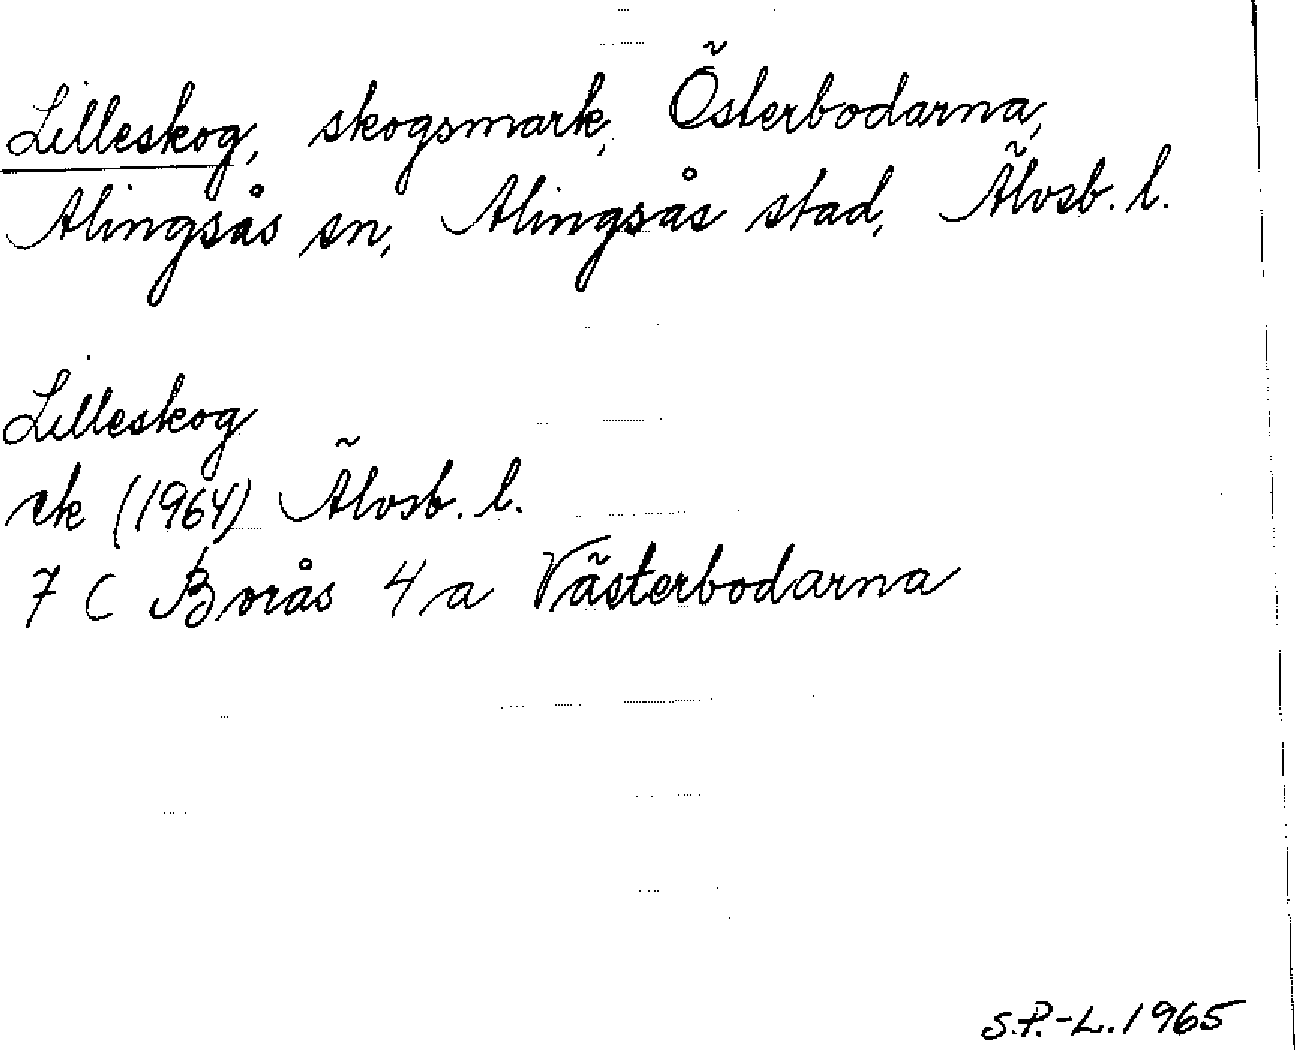 Lilleskog, skogsmark, Österbodarna,
Alingsås sn, Alingsås stad, Älvsb. l.
Lilleskog
ek (1964) Älvsb. l.
7 C Borås 4 a Västerbodarna
S.P.-L. 1965